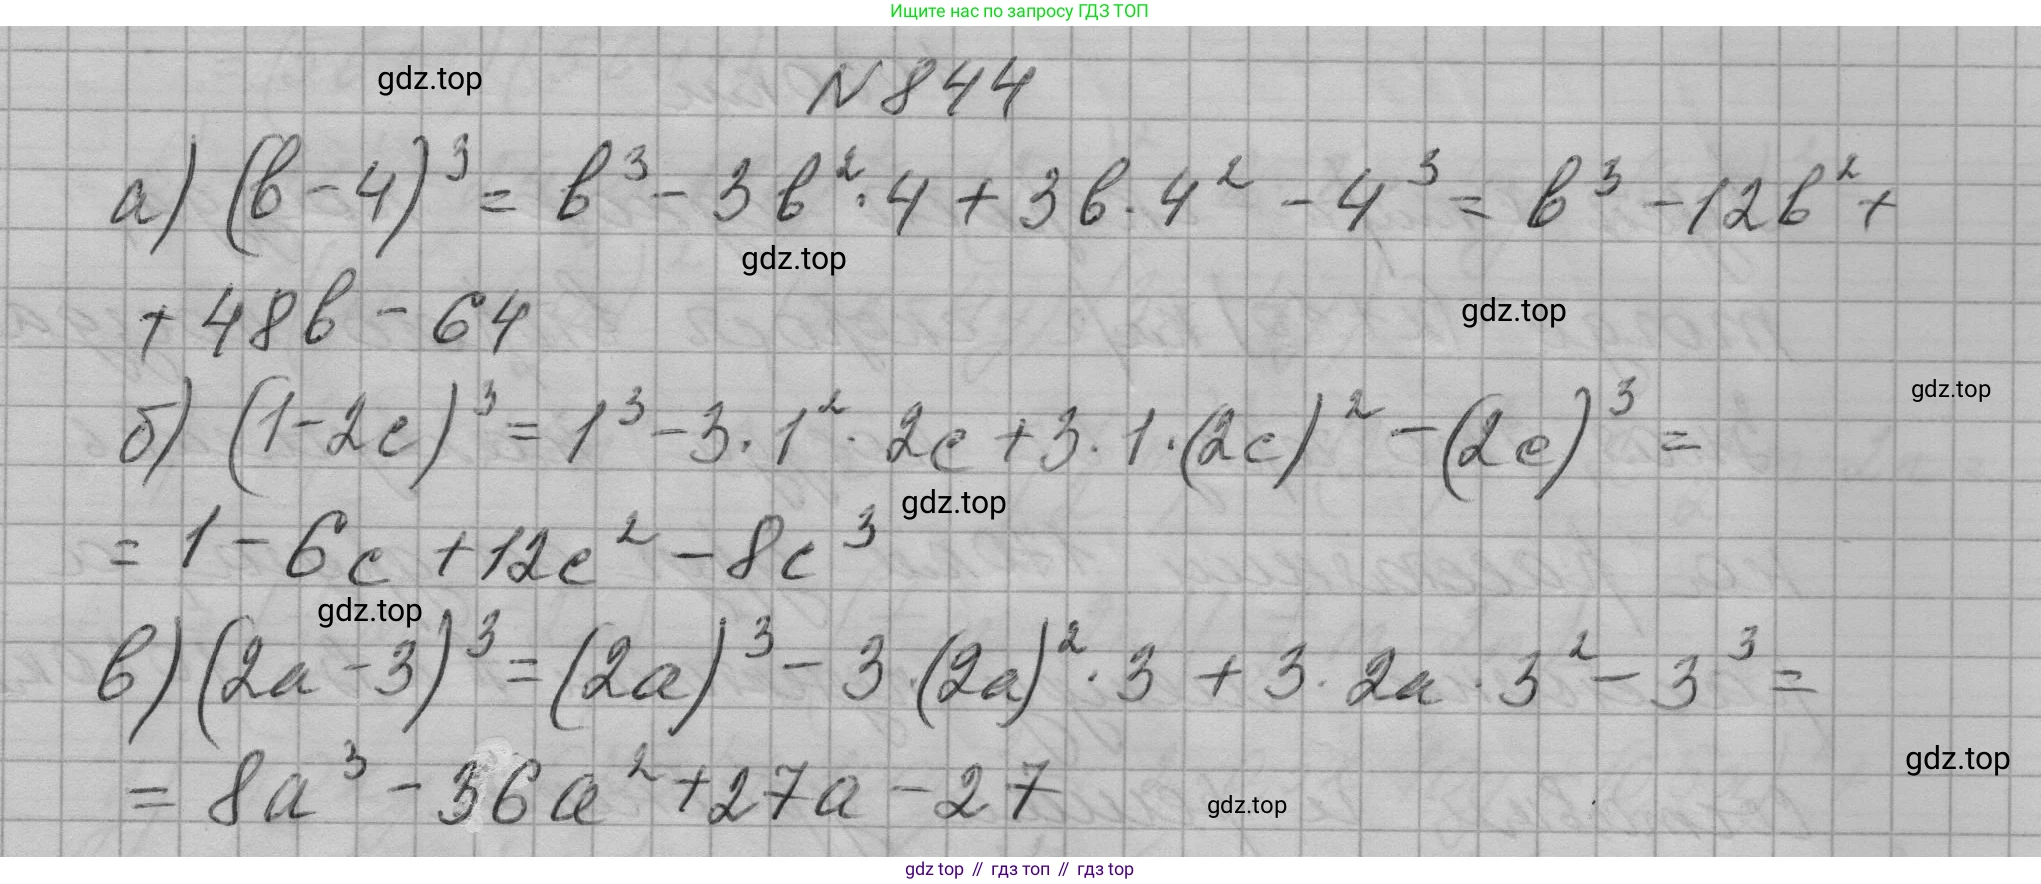 Ищите нас по запросу ГДЗ ТОП
gdz.top
N 844
а) (b-4)³ = b³ - 3b²·4 + 3b·4² - 4³ = b³ - 12b² +
gdz.top
+ 48b - 64
gdz.top
gdz.top
б) (1-2c)³ = 1³ - 3·1²·2c + 3·1·(2c)² - (2c)³ =
gdz.top
= 1 - 6c + 12c² - 8c³
gdz.top
в) (2a-3)³ = (2a)³ - 3·(2a)²·3 + 3·2a·3² - 3³ =
gdz.top
= 8a³ - 36a² + 27a - 27
gdz.top
gdz top // гдз топ // гдз top